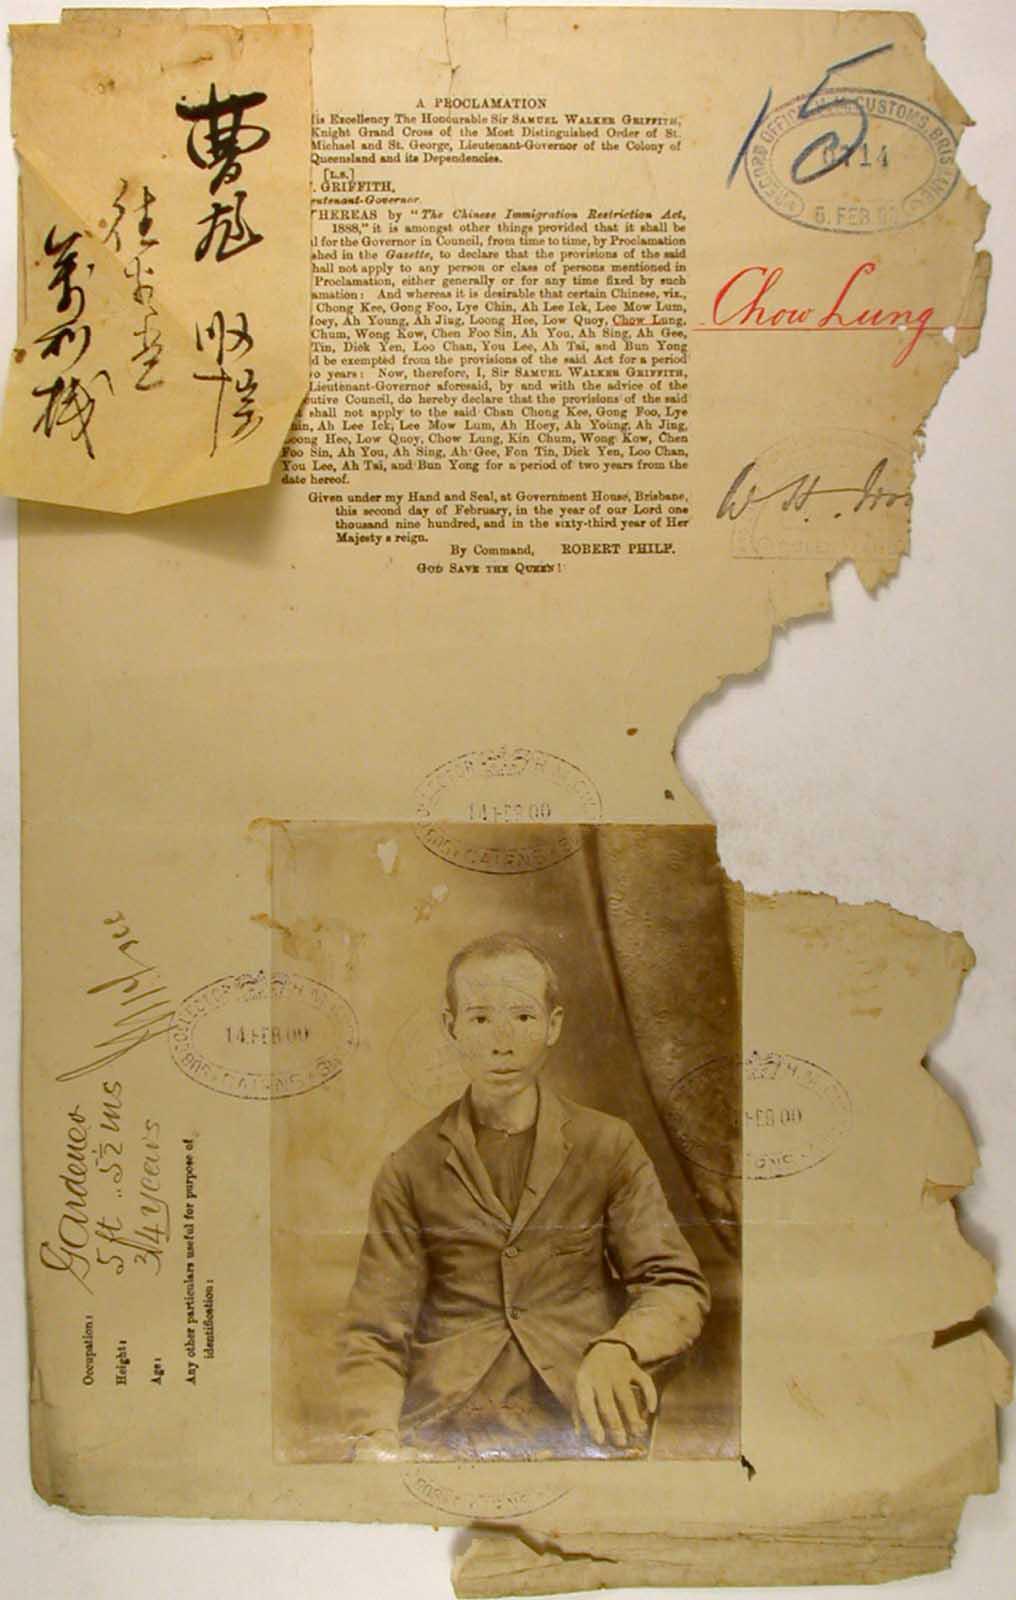 曹
收
往
萬利棧
A PROCLAMATION
is Excellency The Honourable Sir SAMUEL WALKER GRIFFITH,
Knight Grand Cross of the Most Distinguished Order of St.
Michael and St. George, Lieutenant-Governor of the Colony of
Queensland and its Dependencies.
[L.S.]
. GRIFFITH,
eutenant-Governor.
HEREAS by "The Chinese Immigration Restriction Act,
1888," it is amongst other things provided that it shall be
l for the Governor in Council, from time to time, by Proclamation
shed in the Gazette, to declare that the provisions of the said
hall not apply to any person or class of persons mentioned in
Proclamation, either generally or for any time fixed by such
amation: And whereas it is desirable that certain Chinese, viz.,
Chong Kee, Gong Foo, Lye Chin, Ah Lee Ick, Lee Mow Lum,
oey, Ah Young, Ah Jing, Loong Hee, Low Quoy, Chow Lung,
Chum, Wong Kow, Chen Foo Sin, Ah You, Ah Sing, Ah Gee,
Tin, Dick Yen, Loo Chan, You Lee, Ah Tai, and Bun Yong
d be exempted from the provisions of the said Act for a period
o years: Now, therefore, I, Sir SAMUEL WALKER GRIFFITH,
Lieutenant-Governor aforesaid, by and with the advice of the
utive Council, do hereby declare that the provisions of the said
shall not apply to the said Chan Chong Kee, Gong Foo, Lye
hin, Ah Lee Ick, Lee Mow Lum, Ah Hoey, Ah Young, Ah Jing,
oong Hee, Low Quoy, Chow Lung, Kin Chum, Wong Kow, Chen
Foo Sin, Ah You, Ah Sing, Ah Gee, Fon Tin, Dick Yen, Loo Chan,
You Lee, Ah Tai, and Bun Yong for a period of two years from the
date hereof.
Given under my Hand and Seal, at Government House, Brisbane,
this second day of February, in the year of our Lord one
thousand nine hundred, and in the sixty-third year of Her
Majesty s reign.
By Command, ROBERT PHILP.
GOD SAVE THE QUEEN!
15
RECORD OFFICE H.M. CUSTOMS, BRISBANE
0714
5. FEB 00
Chow Lung
W. H.
SUB COLLECTOR H.M. CUS
14 FEB 00
CAIRNS
SUB COLLECTOR H.M. CUS
14.FEB 00
CAIRNS
H.M. C
FEB 00
Occupation: Gardener
Height: 5 ft .. 5½ ins
Age: 34 years
Any other particulars useful for purpose of
identification: